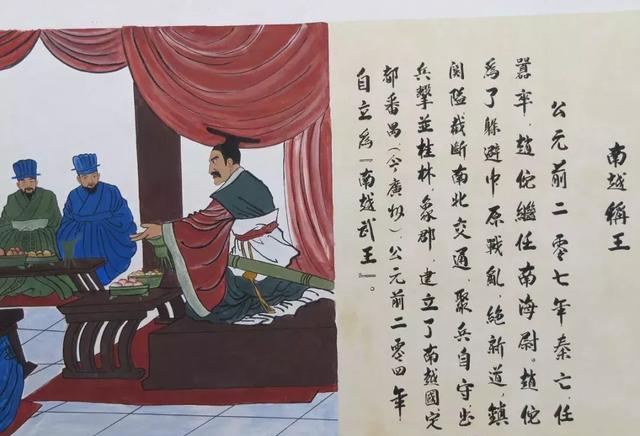 南越稱王
公元前二零七年秦亡，任
囂卒，趙佗繼任南海尉。趙佗
爲了躲避中原戰亂，絕新道，鎮
関隘截斷南北交通，聚兵自守出
兵擊並桂林、象郡，建立了南越國，定
都番禺（今廣州），公元前二零四年
自立爲『南越武王』。